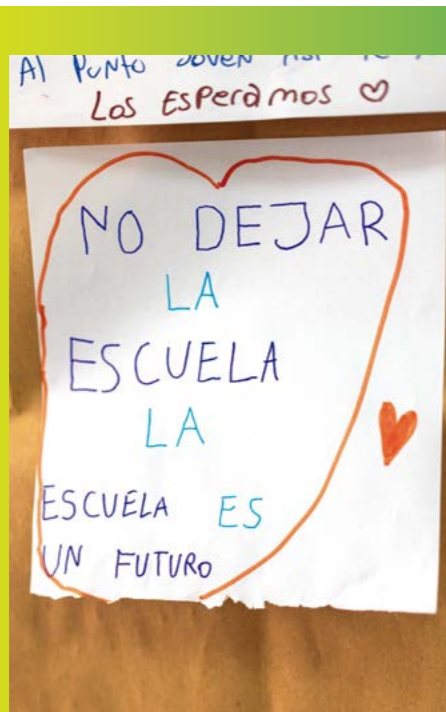 Al Punto Joven
Los Esperamos
NO DEJAR
LA
ESCUELA
LA
ESCUELA ES
UN FUTURO